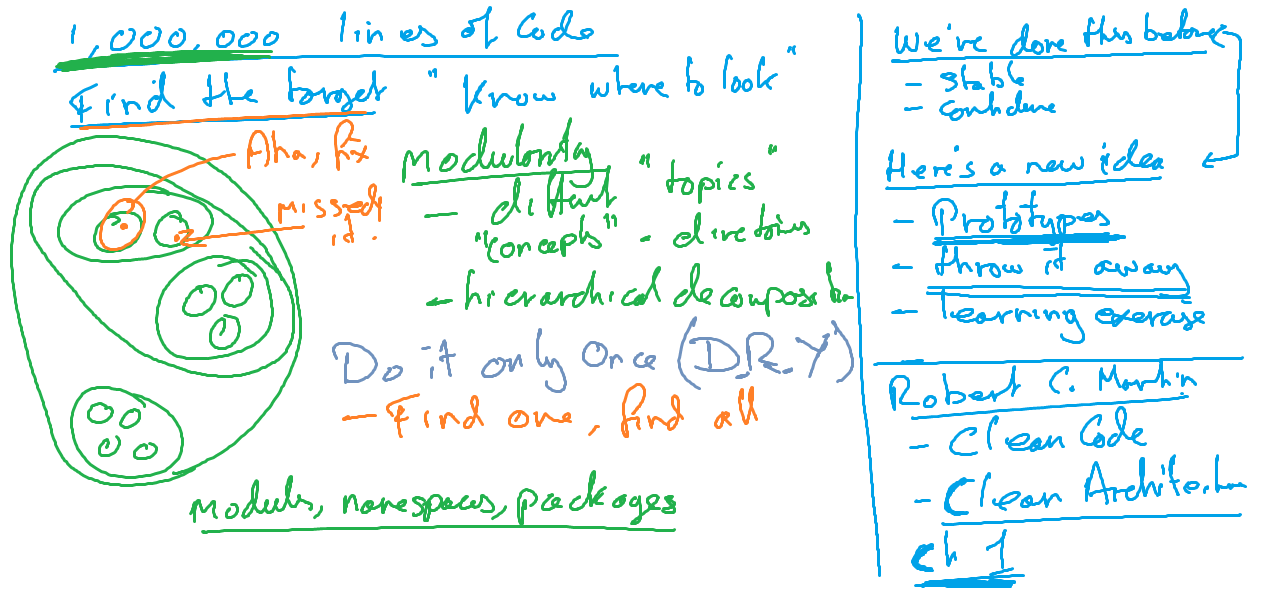 1,000,000 lines of Code
Find the target "Know where to look"
Aha, fix
Missed it.
Modularity
- different "topics"
"concepts" - directories
- hierarchical decomposition
Do it only Once (D.R.Y)
- Find one, find all
Modules, namespaces, packages
We've done this before
- stable
- confidence
Here's a new idea
- Prototypes
- throw it away
- learning exercise
Robert C. Martin
- Clean Code
- Clean Architecture
Ch 1